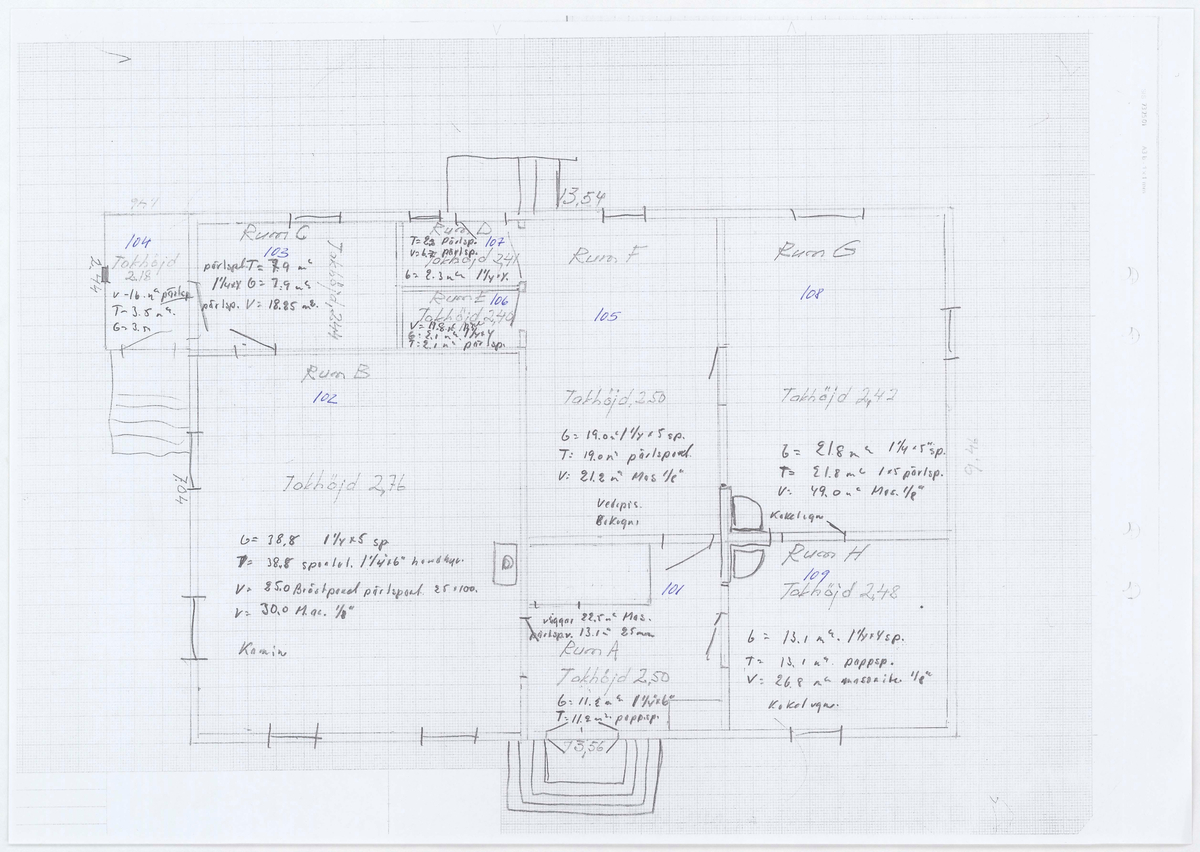 13,54
104
Takhöjd
2,18
V=16. m² pärlsp
T=3.5 m².
G=3.5
2,44
Rum C
103
pärlspT= 7.9 m²
1¼x4 G= 7.9 m²
pärlsp. V= 18.85 m².
Takhöjd 2,44
Rum D
107
pärlsp.
pärlsp.
Takhöjd 2,41
G= 2.3 m² 1¼x4.
Rum E 106
Takhöjd 2,40
G= 2.1 m² 1¼x4
T= 2.1 m² pärlsp.
Rum F
105
Takhöjd 2,50
G= 19.0 m² 1¼x5 sp.
T= 19.0 m² pärlspont.
V= 21.2 m² Mas ⅛"
Vedspis.
Bakugn
Rum G
108
Takhöjd 2,42
G= 21.8 m² 1¼x5" sp.
T= 21.8 m² 1x5 pärlsp.
V= 49.0 m² Mas. ⅛"
Kakelugn
9,46
Rum B
102
Takhöjd 2,76
704
G= 38,8 1¼x5 sp
T= 38.8 spontat. 1¼x6"
V= 25.0 Bröstpanel pärlspont 25x100.
V= 30.0 Mas. ⅛"
Kamin
101
väggar 22.5 m² Mas.
pärlspv. 13.1 m² 25mm
Rum A
Takhöjd 2,50
G= 11.2 m² 1¼x6"
T= 11.2 m². pappsp.
13,56
Rum H
109
Takhöjd 2,48
G= 13.1 m². 1¼x4 sp.
T= 13.1 m². pappsp.
V= 26.8 m² masonite ⅛"
Kakelugn.